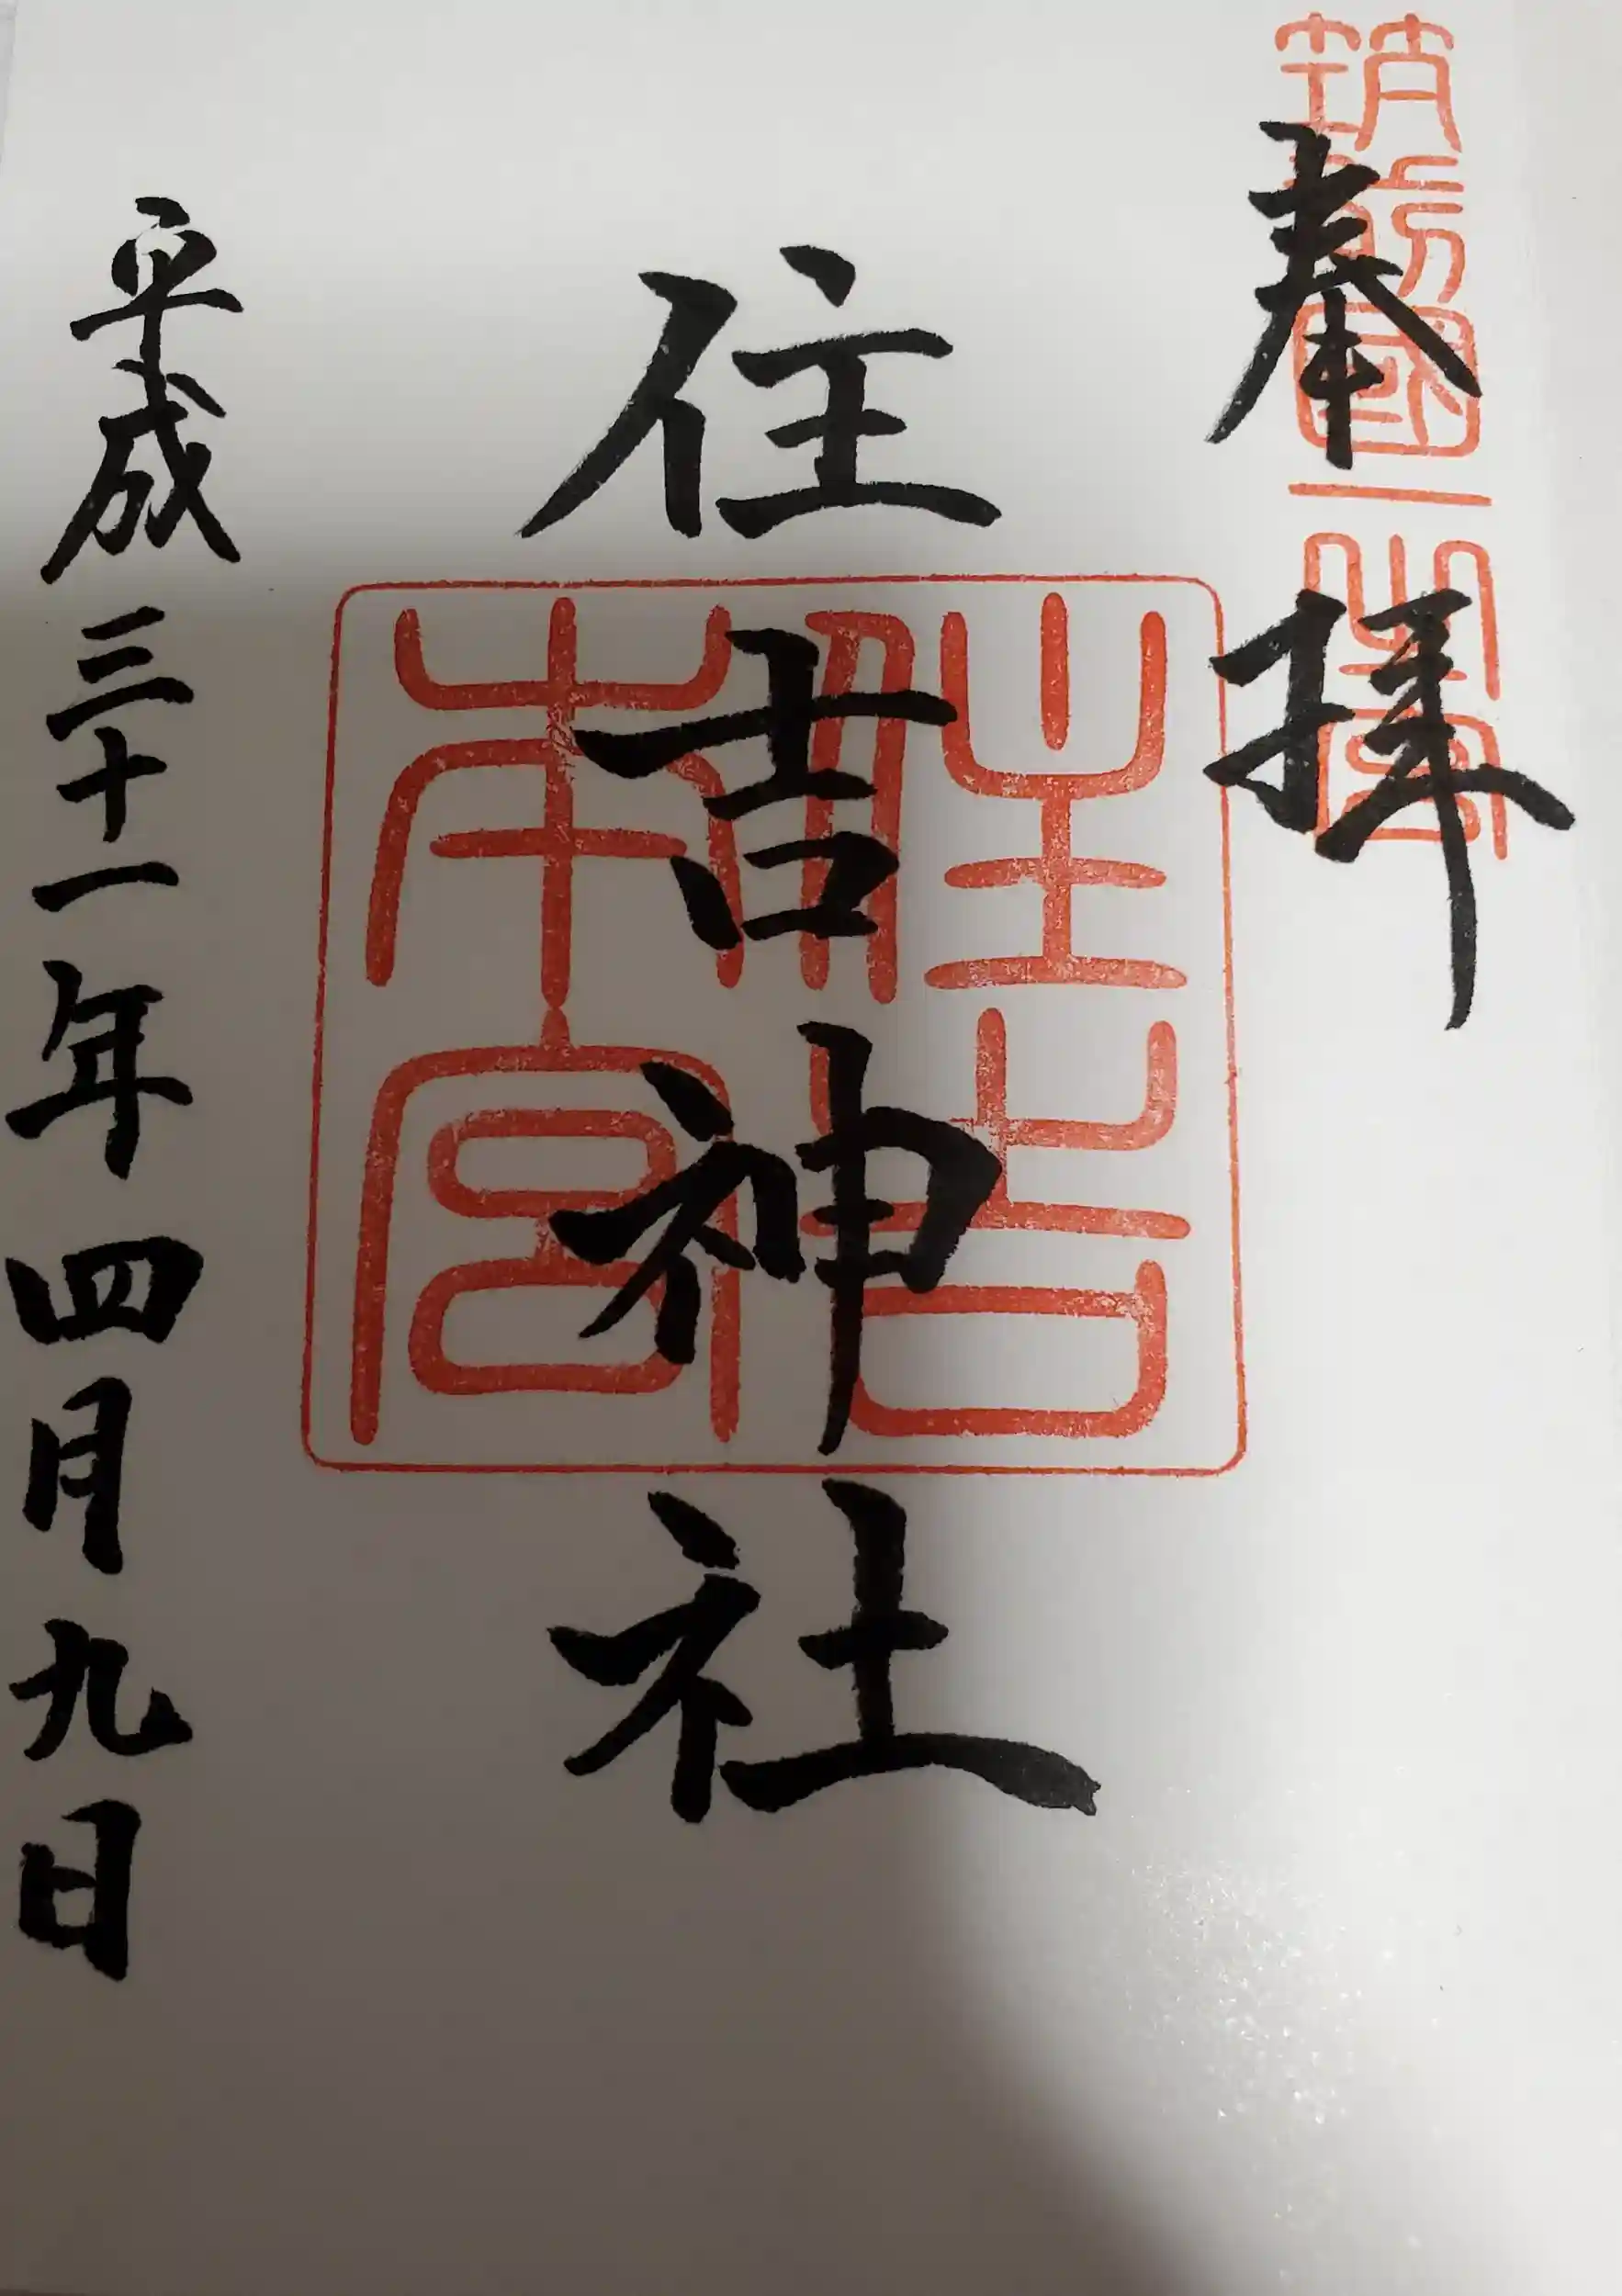 筑前國一之宮
奉拝
住吉神社
住吉
本宮
平成三十一年四月九日